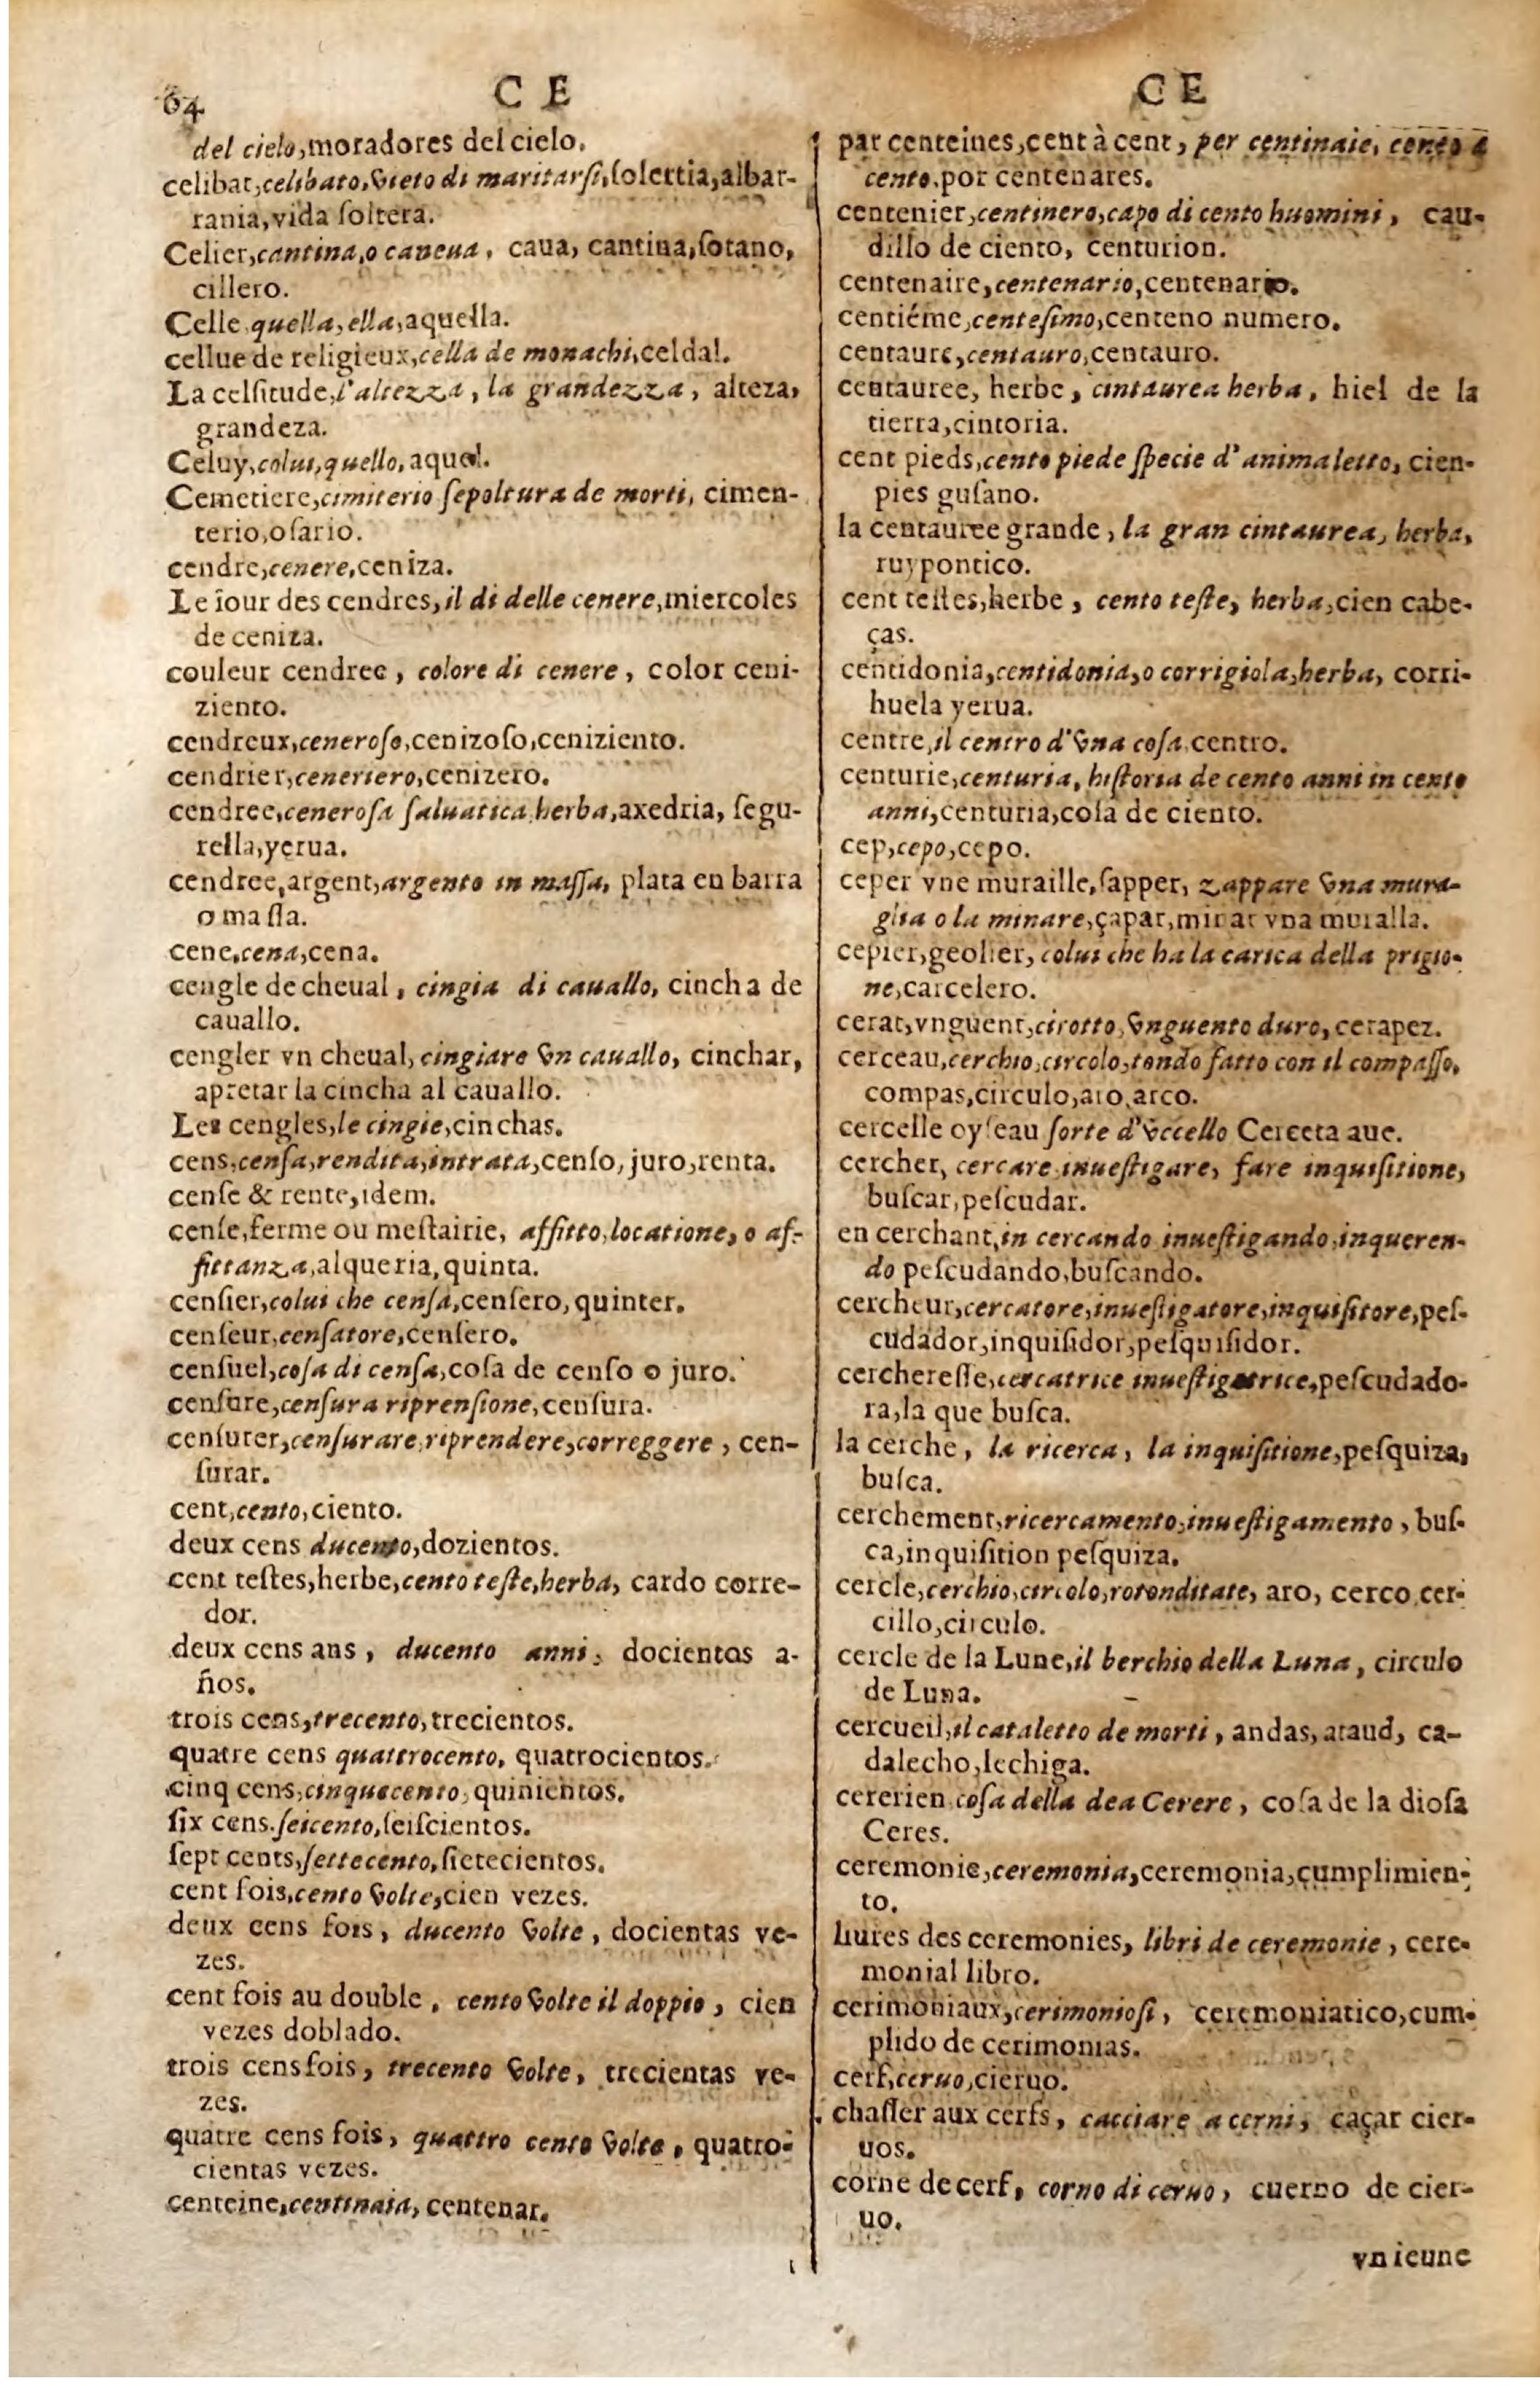 64
C E
del cielo,moradores del cielo.
celibat,celibato,vieto di maritarſi,ſolertia,albar-
rania,vida ſoltera.
Celier,cantina,o caneua, caua, cantina,ſotano,
cillero.
Celle quella,ella,aquella.
cellue de religieux,cella de monachi,celdal.
La celſitude,l'altezza, la grandezza, alteza,
grandeza.
Celuy,colui,quello,aquel.
Cemetiere,cimiterio ſepoltura de morti, cimen-
terio,oſario.
cendre,cenere,ceniza.
Le iour des cendres,il di delle cenere,miercoles
de ceniza.
couleur cendree, colore di cenere, color ceni-
ziento.
cendreux,ceneroſo,cenizoſo,ceniziento.
cendrier,ceneriero,cenizero.
cendree,ceneroſa ſaluatica herba,axedria, ſegu-
rella,yerua.
cendree,argent,argento in maſſa, plata en barra
o maſſa.
cene,cena,cena.
cengle de cheual, cingia di cauallo, cincha de
cauallo.
cengler vn cheual,cingiare vn cauallo, cinchar,
apretar la cincha al cauallo.
Les cengles,le cingie,cinchas.
cens,cenſa,rendita,intrata,cenſo,juro,renta.
cenſe & rente,idem.
cenſe,ferme ou meſtairie, affitto,locatione, o af-
fittanza,alqueria,quinta.
cenſier,colui che cenſa,cenſero,quinter.
cenſeur,cenſatore,cenſero.
cenſuel,coſa di cenſa,coſa de cenſo o juro.
cenſure,cenſura riprenſione,cenſura.
cenſurer,cenſurare,riprendere,correggere, cen-
ſurar.
cent,cento,ciento.
deux cens ducento,dozientos.
cent teſtes,herbe,cento teſte,herba, cardo corre-
dor.
deux cens ans, ducento anni, docientos a-
ños.
trois cens,trecento,trecientos.
quatre cens quattrocento, quatrocientos.
cinq cens,cinquecento,quinientos.
ſix cens.ſeicento,ſeiſcientos.
ſept cents,ſettecento,ſietecientos.
cent fois,cento volte,cien vezes.
deux cens fois, ducento volte, docientas ve-
zes.
cent fois au double, cento volte il doppio, cien
vezes doblado.
trois cens fois, trecento volte, trecientas ve-
zes.
quatre cens fois, quattro cento volte, quatro-
cientas vezes.
centeine,centinaia, centenar.
C E
par centeines,cent à cent, per centinaie, cento a
cento.por centenares.
centenier,centinero,capo di cento huomini, cau-
dillo de ciento, centurion.
centenaire,centenario,centenario.
centiéme,centeſimo,centeno numero.
centaure,centauro,centauro.
centauree, herbe, cintaurea herba, hiel de la
tierra,cintoria.
cent pieds,cento piede ſpecie d'animaletto, cien-
pies guſano.
la centauree grande, la gran cintaurea, herba,
ruypontico.
cent teſtes,herbe, cento teſte, herba,cien cabe-
ças.
centidonia,centidonia,o corrigiola,herba, corri-
huela yerua.
centre,il centro d'vna coſa,centro.
centurie,centuria, hiſtoria de cento anni in cento
anni,centuria,coſa de ciento.
cep,cepo,cepo.
ceper vne muraille,ſapper, zappare vna mura-
glia o la minare,çapar,minar vna muralla.
cepier,geolier, colui che ha la carica della prigio-
ne,carcelero.
cerat,vnguent,cirotto,vnguento duro,cerapez.
cerceau,cerchio,circolo,tondo fatto con il compaſſo,
compas,circulo,aro,arco.
cercelle oyſeau ſorte d'vccello Cerceta aue.
cercher, cercare inueſtigare, fare inquiſitione,
buſcar,peſcudar.
en cerchant,in cercando inueſtigando,inqueren-
do peſcudando,buſcando.
cercheur,cercatore,inueſtigatore,inquiſitore,peſ-
cudador,inquiſidor,peſquiſidor.
cerchereſſe,cercatrice inueſtigatrice,peſcudado-
ra,la que buſca.
la cerche, la ricerca, la inquiſitione,peſquiza,
buſca.
cerchement,ricercamento,inueſtigamento, buſ-
ca,inquiſition peſquiza.
cercle,cerchio,circolo,rotonditate, aro, cerco cer-
cillo,circulo.
cercle de la Lune,il berchio della Luna, circulo
de Luna.
cercueil,il cataletto de morti, andas,ataud, ca-
dalecho,lechiga.
cererien coſa della dea Cerere, coſa de la dioſa
Ceres.
ceremonie,ceremonia,ceremonia,çumplimien-
to.
liures des ceremonies, libri de ceremonie, cere-
monial libro.
cerimoniaux,cerimonioſi, ceremoniatico,cum-
plido de cerimonias.
cerf,ceruo,cieruo.
chaſſer aux cerfs, cacciare a cerni, caçar cier-
uos.
corne de cerf, corno di ceruo, cuerno de cier-
uo.
vn ieune